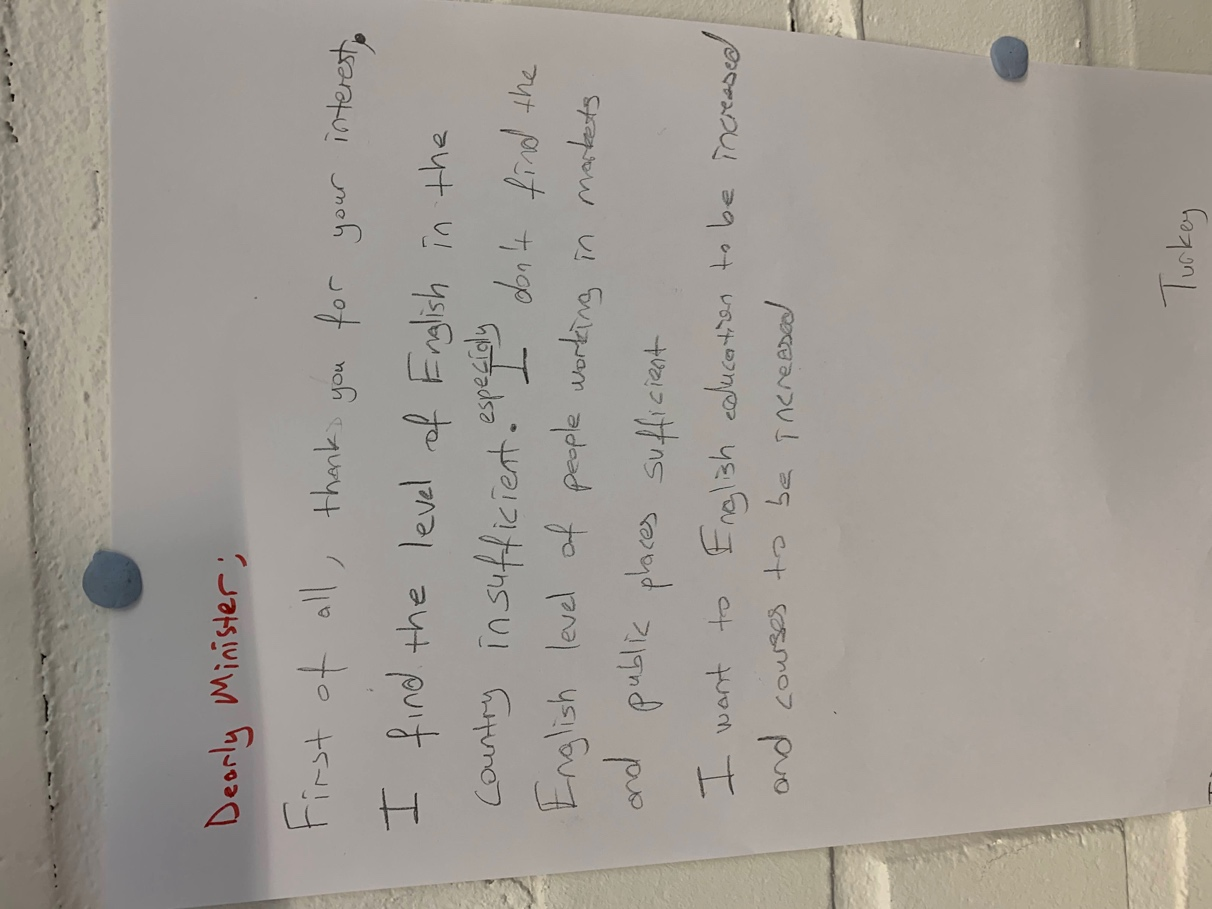 Dearly Minister;
First of all, thank you for your interest,
I find the level of English in the
country insufficient. especially I don't find the
English level of people working in markets
and public places sufficient
I want to English education to be increased
and courses to be increased
Turkey